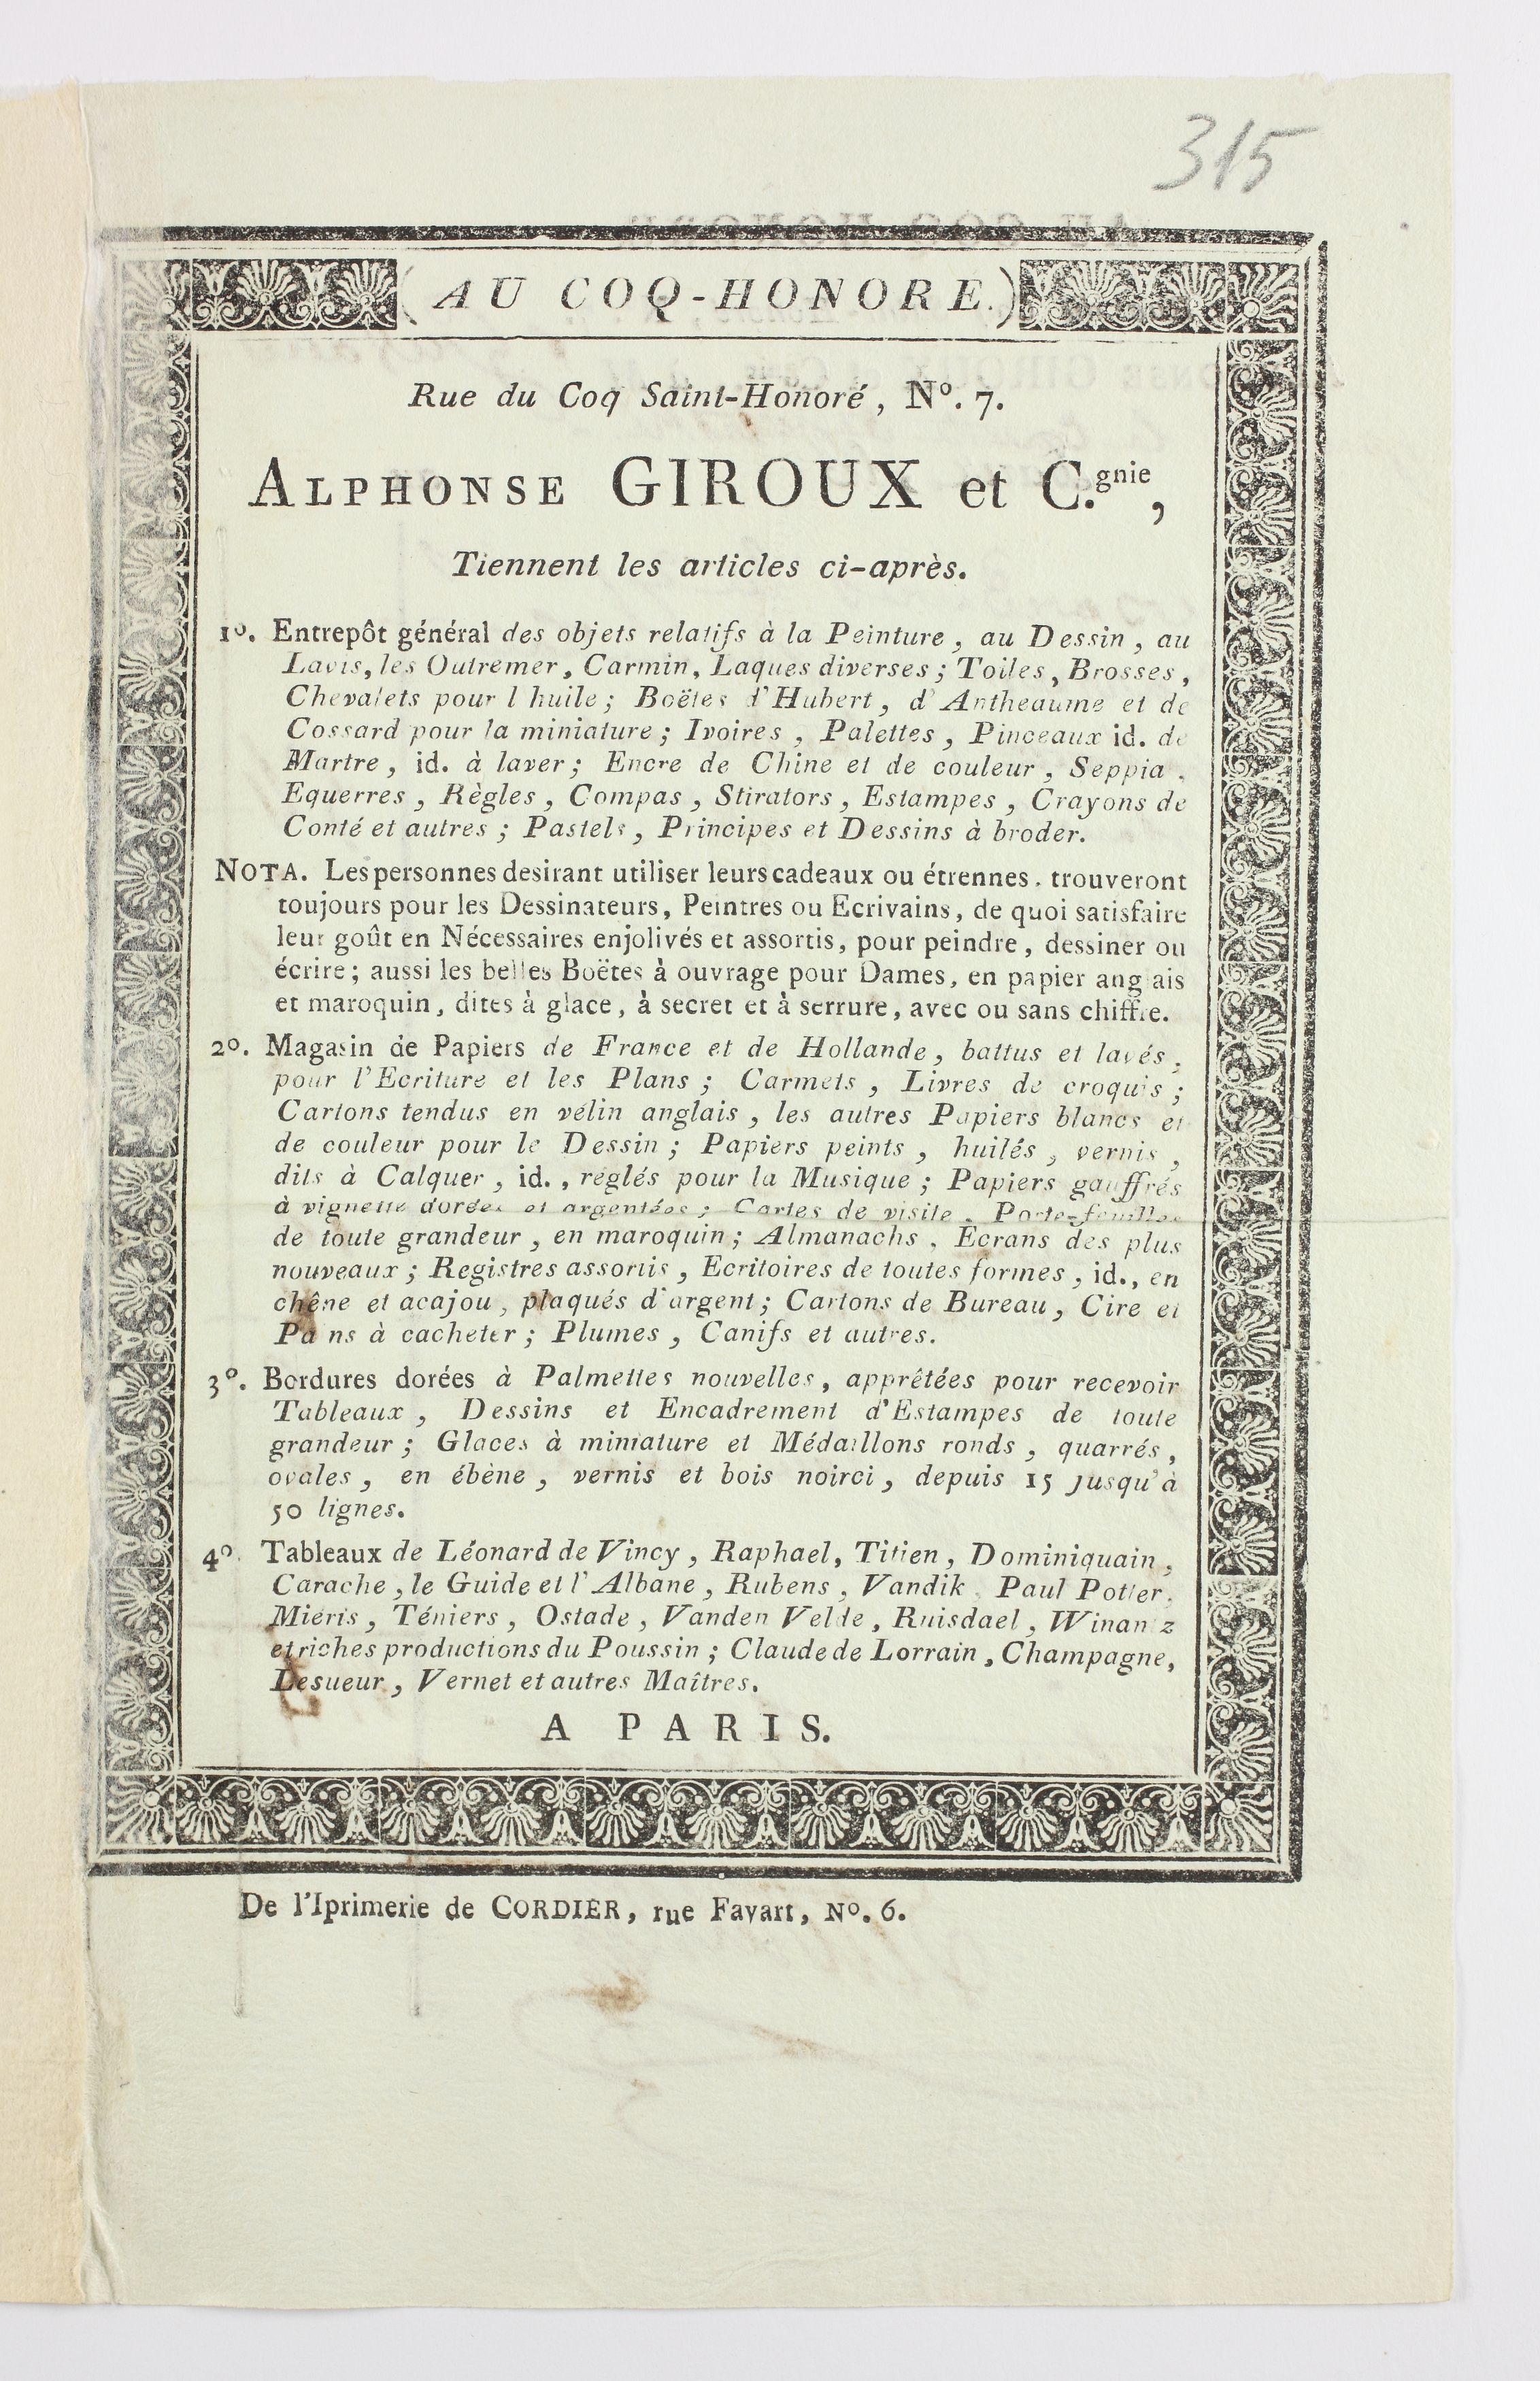 315
AU COQ-HONORE.
Rue du Coq Saint-Honoré, N°. 7.
ALPHONSE GIROUX et C.gnie,
Tiennent les articles ci-après.
1°. Entrepôt général des objets relatifs à la Peinture, au Dessin, au
Lavis, les Outremer, Carmin, Laques diverses; Toiles, Brosses,
Chevalets pour l'huile; Boëtes d'Hubert, d'Antheaume et de
Cossard pour la miniature; Ivoires, Palettes, Pinceaux id. de
Martre, id. à laver; Encre de Chine et de couleur, Seppia,
Equerres, Règles, Compas, Stirators, Estampes, Crayons de
Conté et autres; Pastels, Principes et Dessins à broder.
NOTA. Les personnes desirant utiliser leurs cadeaux ou étrennes, trouveront
toujours pour les Dessinateurs, Peintres ou Ecrivains, de quoi satisfaire
leur goût en Nécessaires enjolivés et assortis, pour peindre, dessiner ou
écrire; aussi les belles Boëtes à ouvrage pour Dames, en papier anglais
et maroquin, dites à glace, à secret et à serrure, avec ou sans chiffre.
2°. Magasin de Papiers de France et de Hollande, battus et lavés,
pour l'Ecriture et les Plans; Carmets, Livres de croquis;
Cartons tendus en vélin anglais, les autres Papiers blancs et
de couleur pour le Dessin; Papiers peints, huilés, vernis,
dits à Calquer, id., réglés pour la Musique; Papiers gauffrés
à vignette dorées et argentées; Cartes de visite, Porte-feuilles
de toute grandeur, en maroquin; Almanachs, Ecrans des plus
nouveaux; Registres assortis, Ecritoires de toutes formes, id., en
chêne et acajou, plaqués d'argent; Cartons de Bureau, Cire et
Pains à cacheter; Plumes, Canifs et autres.
3°. Bordures dorées à Palmettes nouvelles, apprêtées pour recevoir
Tableaux, Dessins et Encadrement d'Estampes de toute
grandeur; Glaces à miniature et Médaillons ronds, quarrés,
ovales, en ébène, vernis et bois noirci, depuis 15 jusqu'à
50 lignes.
4°. Tableaux de Léonard de Vincy, Raphael, Titien, Dominiquain,
Carache, le Guide et l'Albane, Rubens, Vandik, Paul Potter,
Miéris, Téniers, Ostade, Vanden Velde, Ruisdael, Winantz
et riches productions du Poussin; Claude de Lorrain, Champagne,
Lesueur, Vernet et autres Maîtres.
A PARIS.
De l'Iprimerie de CORDIER, rue Favart, N°. 6.